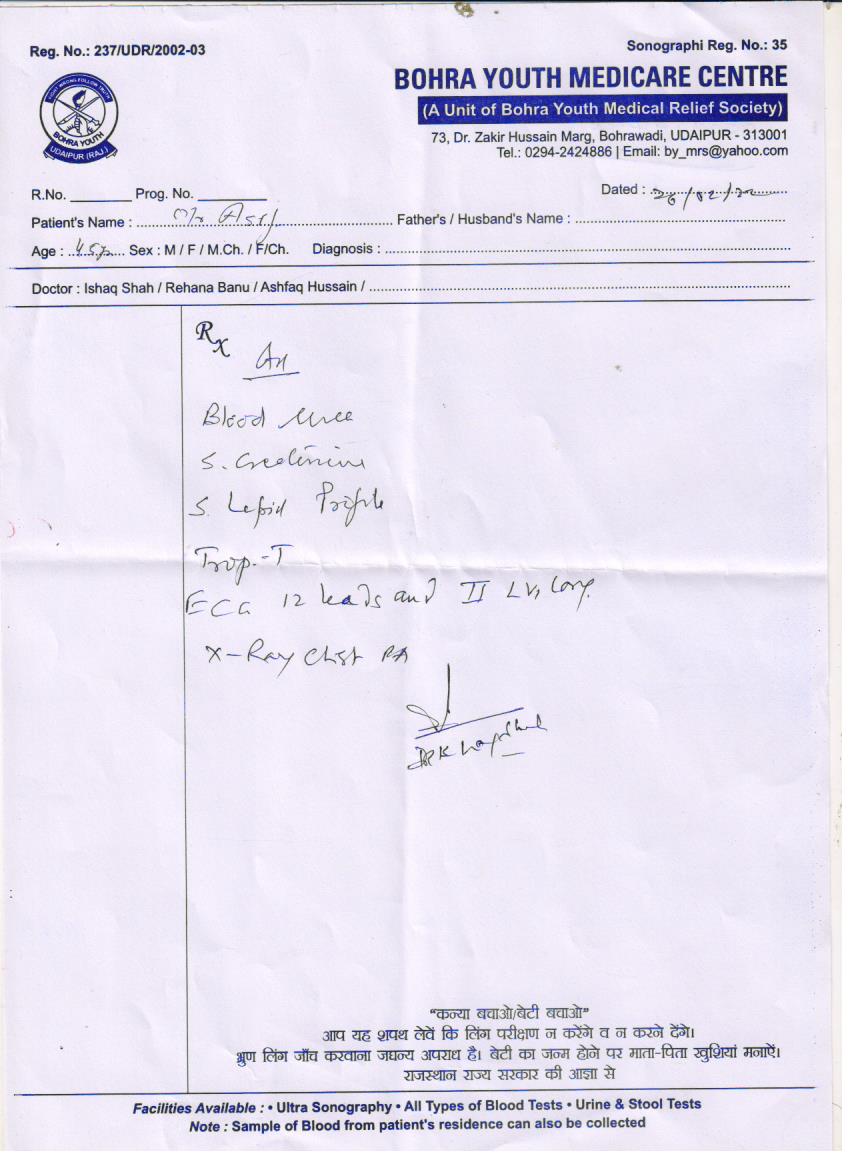 Reg. No.: 237/UDR/2002-03
Sonographi Reg. No.: 35
BOHRA YOUTH MEDICARE CENTRE
(A Unit of Bohra Youth Medical Relief Society)
73, Dr. Zakir Hussain Marg, Bohrawadi, UDAIPUR - 313001
Tel.: 0294-2424886 | Email: by_mrs@yahoo.com
BOHRA YOUTH
UDAIPUR (RAJ.)
R.No. ________ Prog. No. ________
Dated : 26/02/22
Patient's Name : Father's / Husband's Name :
Age : 45 Sex : M / F / M.Ch. / F/Ch. Diagnosis :
Doctor : Ishaq Shah / Rehana Banu / Ashfaq Hussain /
Rx
Blood Urea
S. Creatinine
S. Lepid Profile
Trop.-T
ECG 12 leads and II
X-Ray Chest PA
"कन्या बचाओ/बेटी बचाओ"
आप यह शपथ लेवें कि लिंग परीक्षण न करेंगे व न करने देंगे।
भ्रुण लिंग जाँच करवाना जघन्य अपराध है। बेटी का जन्म होने पर माता-पिता खुशियां मनाऐं।
राजस्थान राज्य सरकार की आज्ञा से
Facilities Available : • Ultra Sonography • All Types of Blood Tests • Urine & Stool Tests
Note : Sample of Blood from patient's residence can also be collected